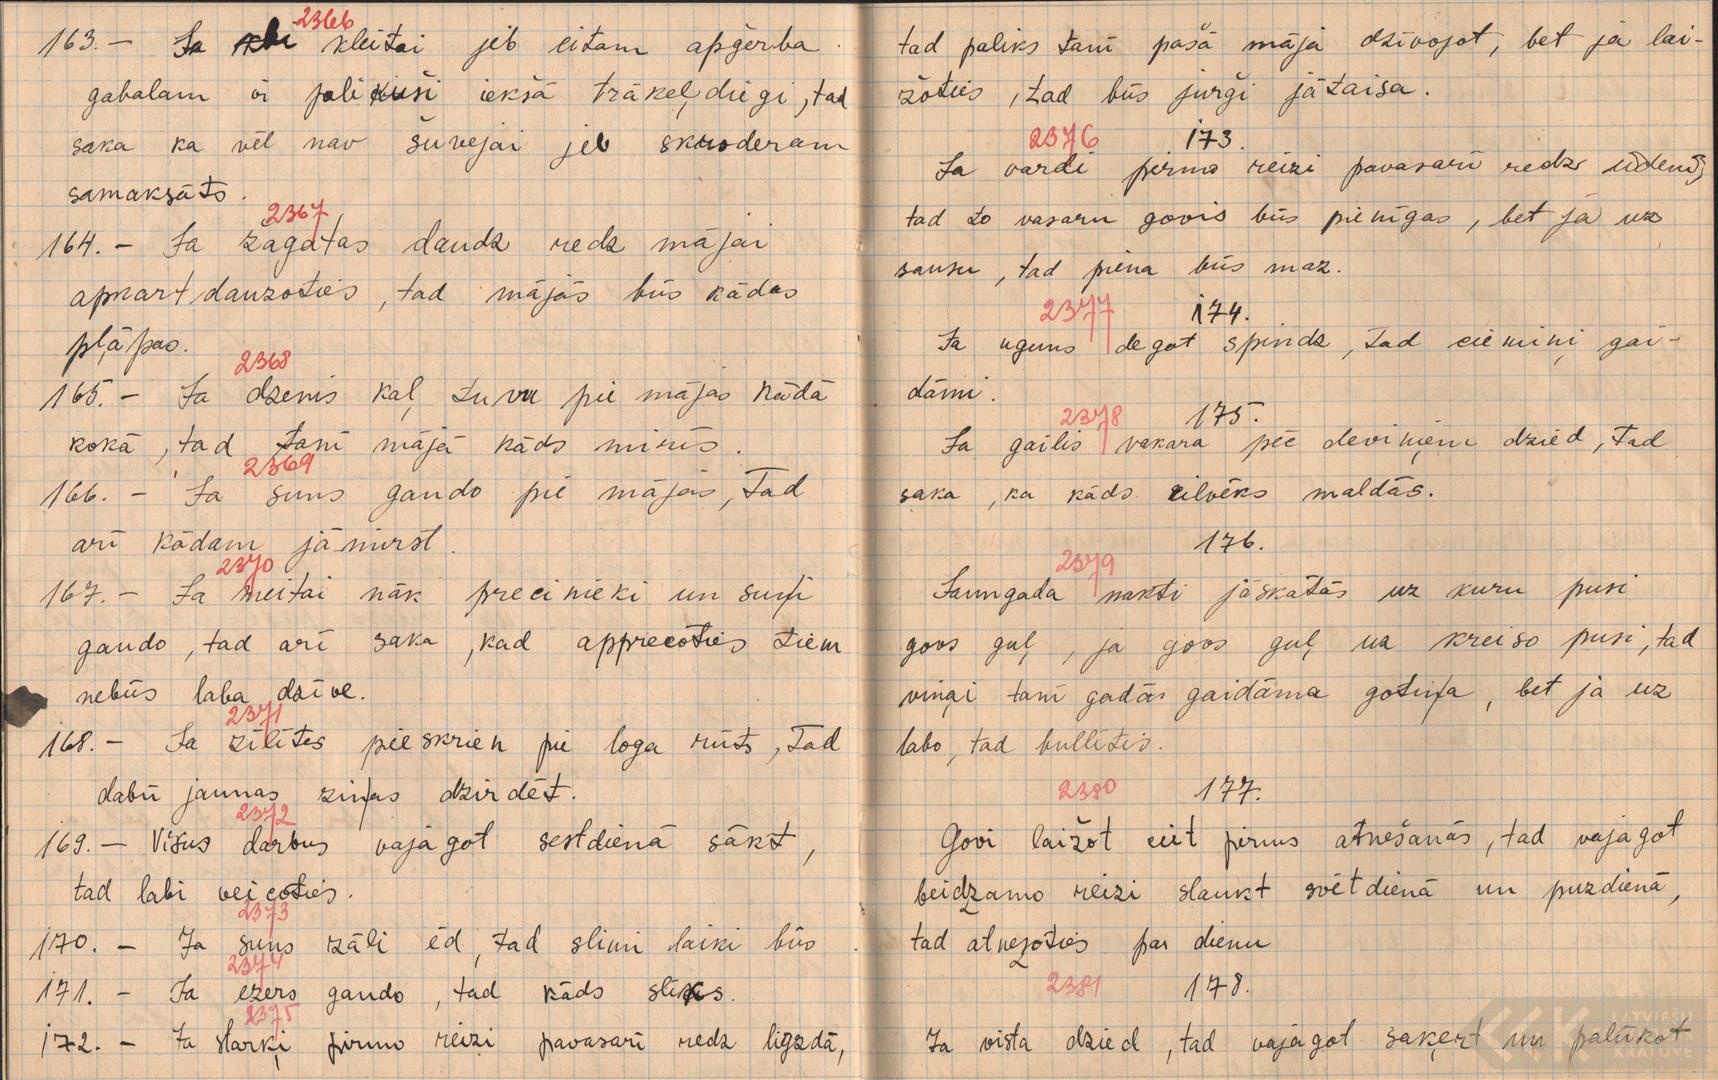 2366
163. — Ja kleitai jeb citam apģerba
gabalam ir palikuši iekšā trākeļdiegi, tad
saka ka vēl nav šuvejai jeb skroderam
samaksāts.
2367
164. — Ja žagatas daudz redz mājai
apkart dauzoties, tad mājās būs kādas
pļāpas.
2368
165. — Ja dzenis kaļ tuvu pie mājas kādā
kokā, tad tanī mājā kāds mirus.
2369
166. — Ja suns gaudo pie mājas, tad
arī kādam jāmirst.
2370
167. — Ja meitai nāk precinieki un suņi
gaudo, tad arī saka, kad apprecoties tiem
nebūs laba dzīve.
2371
168. — Ja zīlītes pieskrien pie loga rūts, tad
dabū jaunas ziņas dzirdēt.
2372
169. — Visus darbus vajagot sestdienā sākt,
tad labi veicoties.
2373
170. — Ja suns zāli ēd, tad slimi laiki būs.
2374
171. — Ja ezers gaudo, tad kāds slīks.
2375
172. — Ja starķi pirmo reizi pavasarī redz ligzdā,
tad paliks tanī pašā mājā dzīvojot, bet ja lai-
žoties, tad būs jurģi jātaisa.
2376 173.
Ja vardi pirmo reizi pavasarī redz ūdenī,
tad to vasaru govis būs pienīgas, bet ja uz
sausu, tad piena būs maz.
2377 174.
Ja uguns degot spindz, tad ciemiņi gai-
dāmi.
2378 175.
Ja gailis vakara pēc deviņiem dzied, tad
saka, ka kāds cilvēks maldās.
176.
2379
Jaungada naktī jāskatās uz kuru pusi
govs guļ, ja govs guļ uz kreiso pusi, tad
viņai tanī gadās gaidāma gotiņa, bet ja uz
labo, tad bullītis.
2380 177.
Govi laižot ciet pirms atnešanās, tad vajagot
beidzamo reizi slaukt svētdienā un puzdienā,
tad atnesoties pa dienu
2381 178.
Ja vista dzied, tad vajagot saķert un palūkot